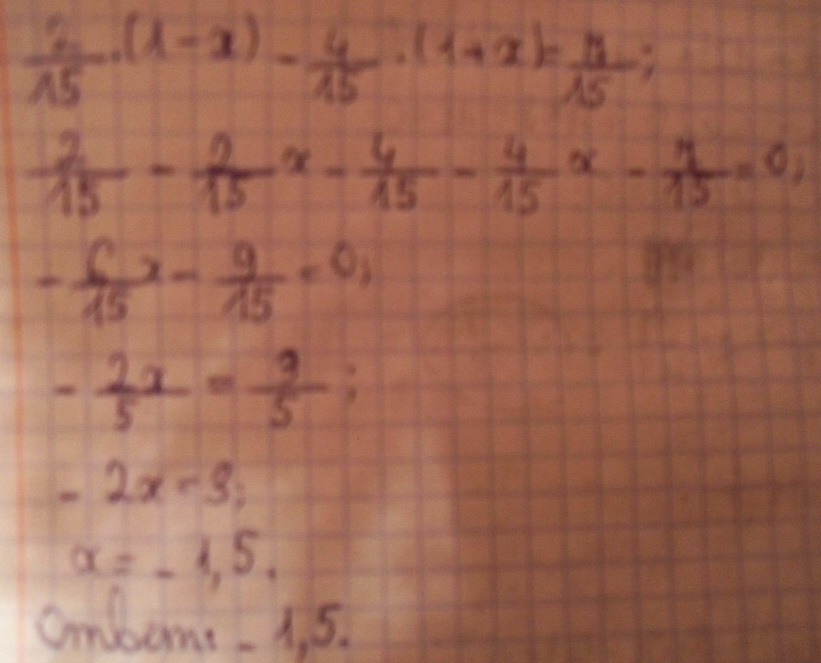 2/15 · (1 - x) - 4/15 · (1 + x) = 7/15;
2/15 - 2/15 x - 4/15 - 4/15 x - 7/15 = 0;
- 6/15 x - 9/15 = 0;
- 2x/5 = 3/5;
- 2x = 3;
x = - 1,5.
Ответ: - 1,5.